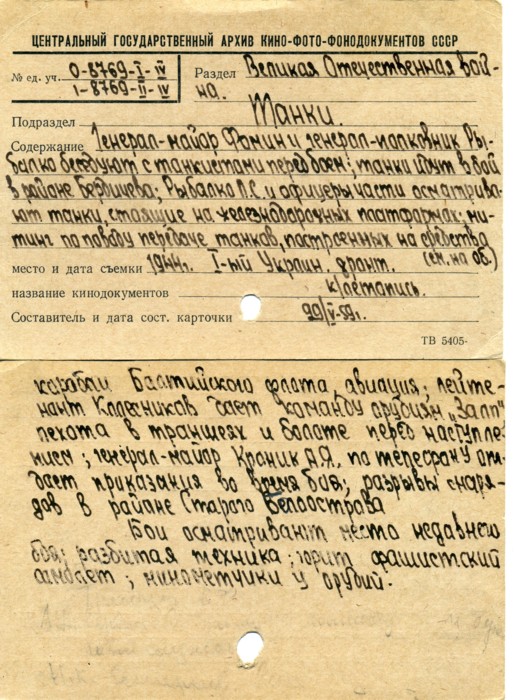 ЦЕНТРАЛЬНЫЙ ГОСУДАРСТВЕННЫЙ АРХИВ КИНО-ФОТО-ФОНОДОКУМЕНТОВ СССР
№ ед. уч. 0-8769-I-IV
1-8769-II-IV
Раздел Великая Отечественная вой-
на.
Подраздел Танки.
Содержание Генерал-майор Фомин и генерал-полковник Ры-
балко беседуют с танкистами перед боем; танки идут в бой
в районе Бердичева; Рыбалко П.С. и офицеры части осматрива-
ют танки, стоящие на железнодорожных платформах; ми-
тинг по поводу передаче танков, построенных на средства
(см. на об.)
место и дата съемки 1944г. I-ый Украин. фронт.
название кинодокументов к/летопись.
Составитель и дата сост. карточки 29/V-59г.
ТВ 5405-
корабли Балтийского флота, авиация; лейте-
нант Колесников дает команду орудиям "Залп"
пехота в траншеях и болоте перед наступле-
нием; генерал-майор Краник А.Я. по телефону от-
дает приказания во время боя; разрывы снаря-
дов в районе Старого Белоострова
Бои осматривают место недавнего
боя; разбитая техника; горит фашистский
; минометчики у орудий.